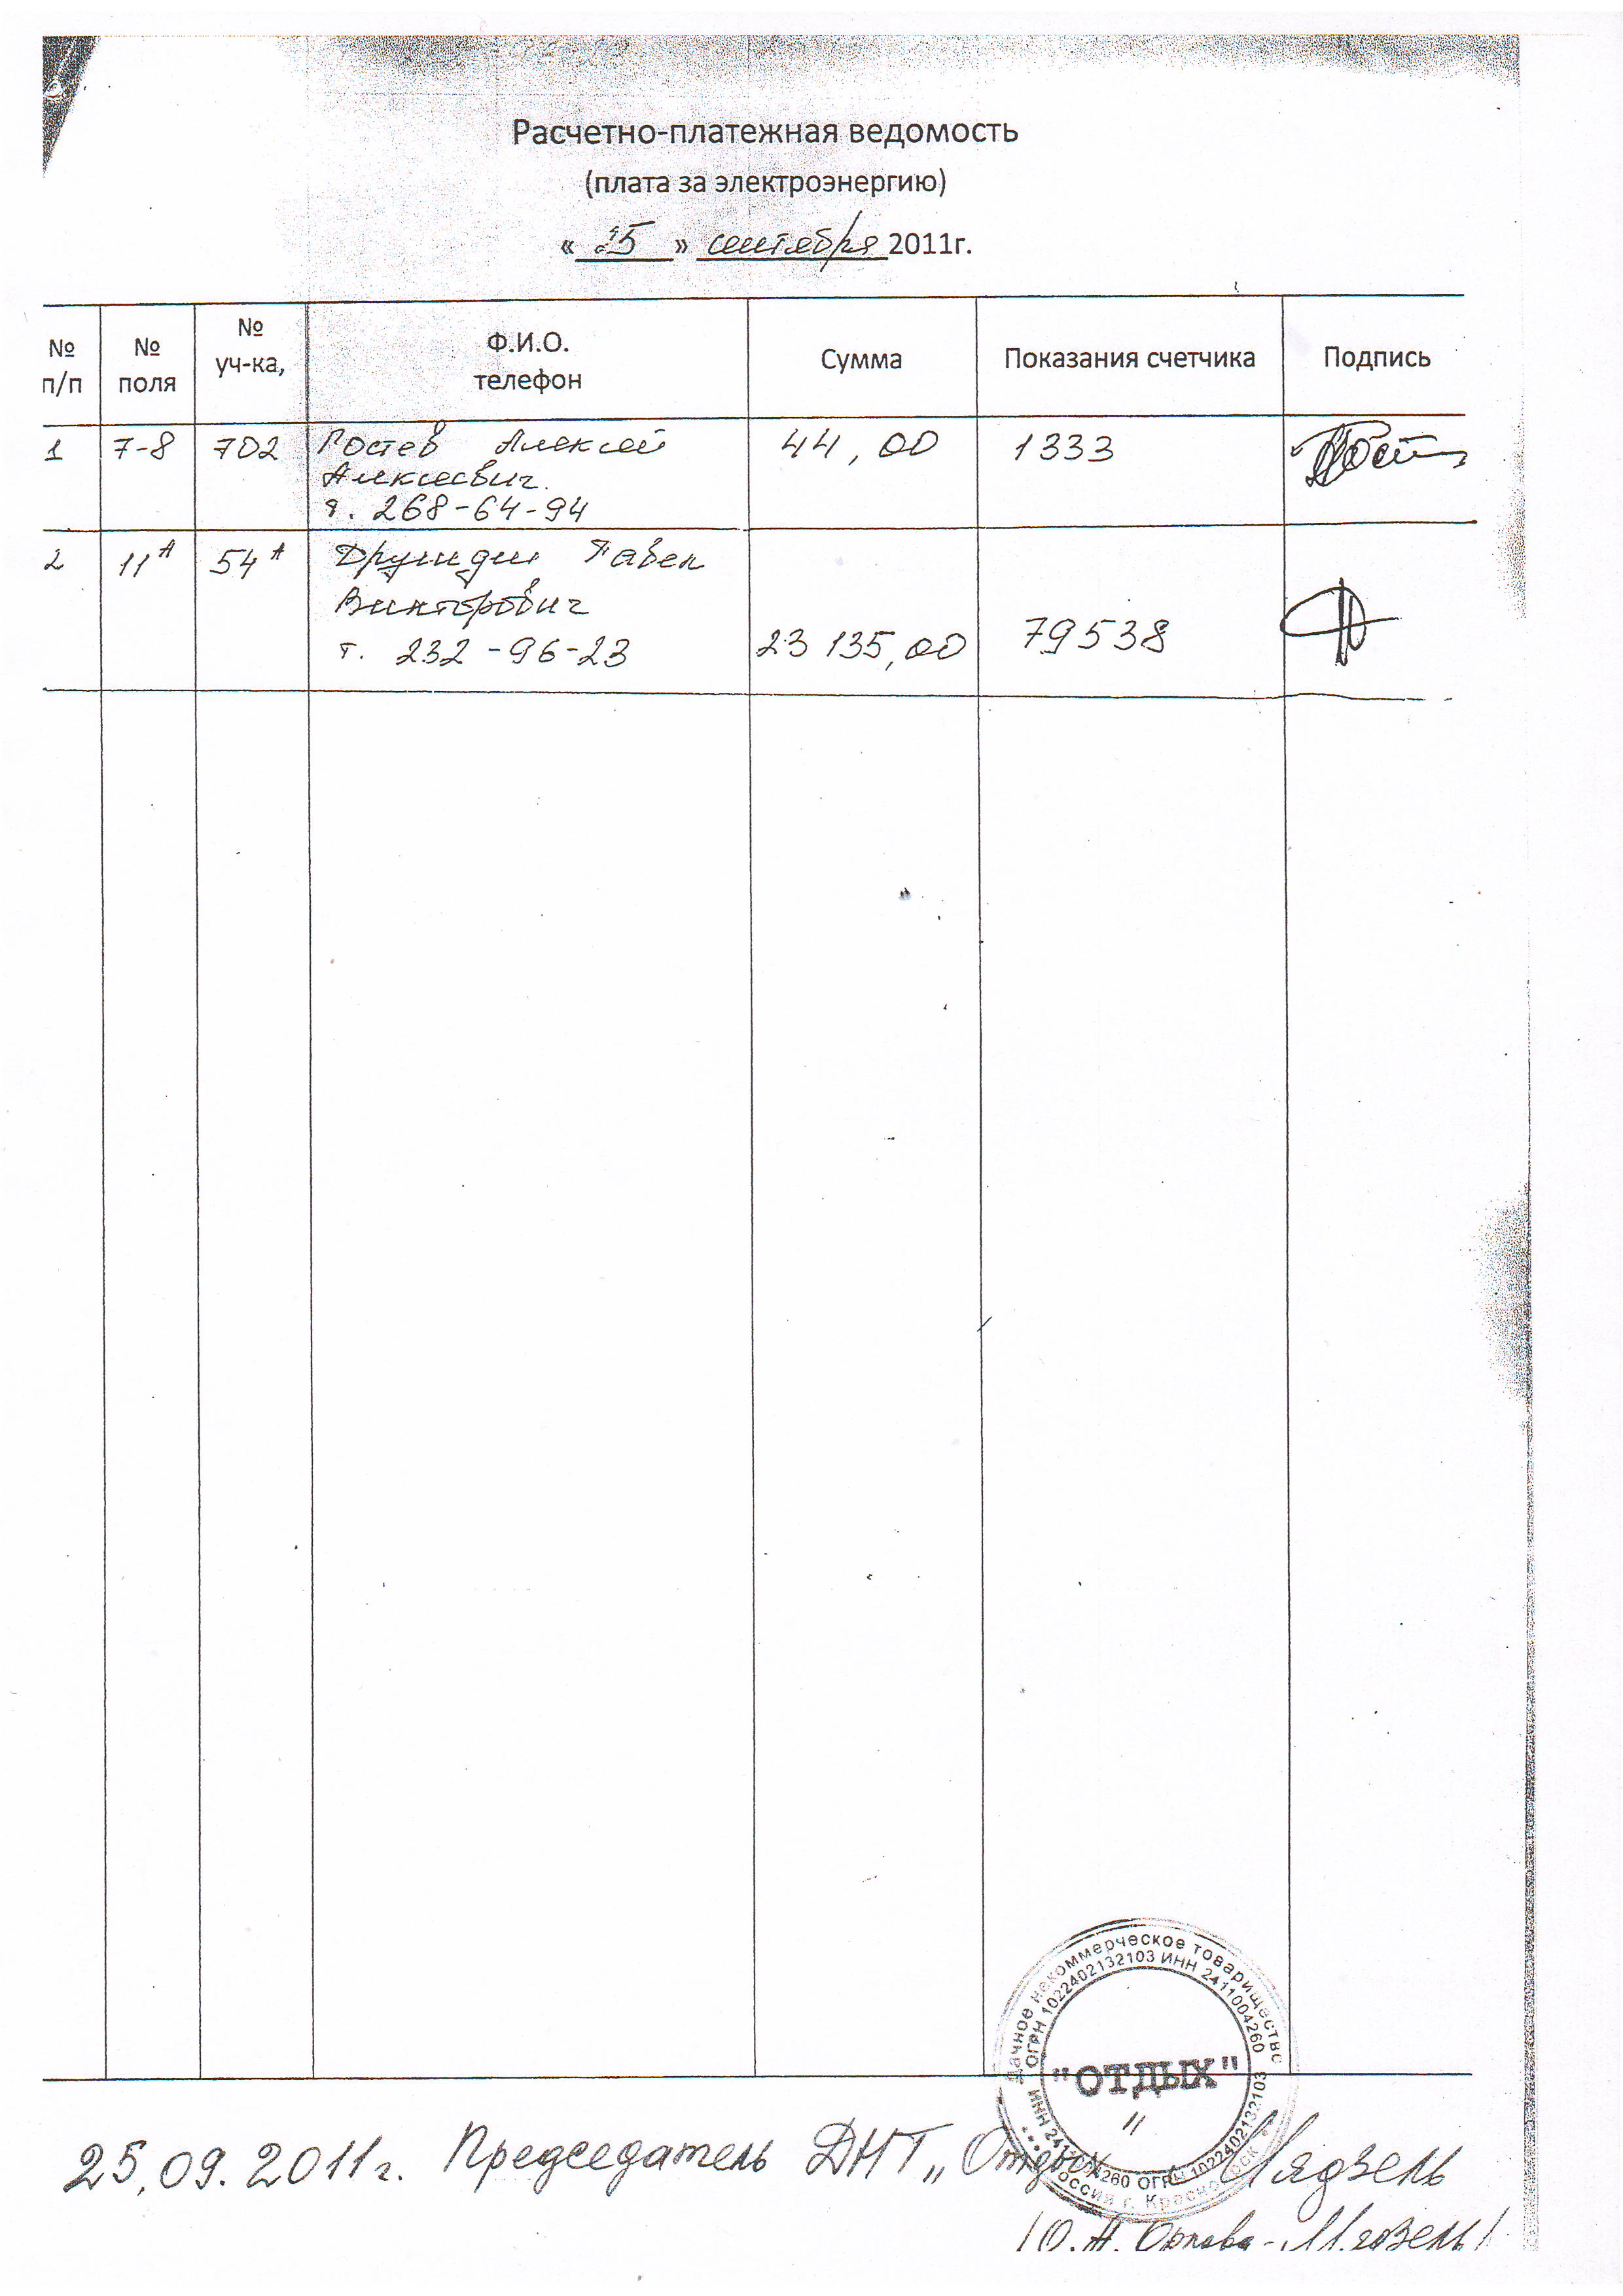 Расчетно-платежная ведомость
(плата за электроэнергию)
« 25 » сентября 2011г.
№ п/п № поля № уч-ка, Ф.И.О. телефон Сумма Показания счетчика Подпись
1 7-8 702 Гостев Алексей 44,00 1333
Алексеевич.
т. 268-64-94
2 11А 54А Павел
Викторович
т. 232-96-23 23 135,00 79538
Дачное некоммерческое товарищество
ОГРН 1022402132103 ИНН 2411004260
"ОТДЫХ"
ИНН 2411004260 ОГРН 1022402132103
Россия г. Красноярск
25.09.2011г. Председатель ДНТ „Отдых" Мядзель
/Ю.А. Орлова-Мядзель/